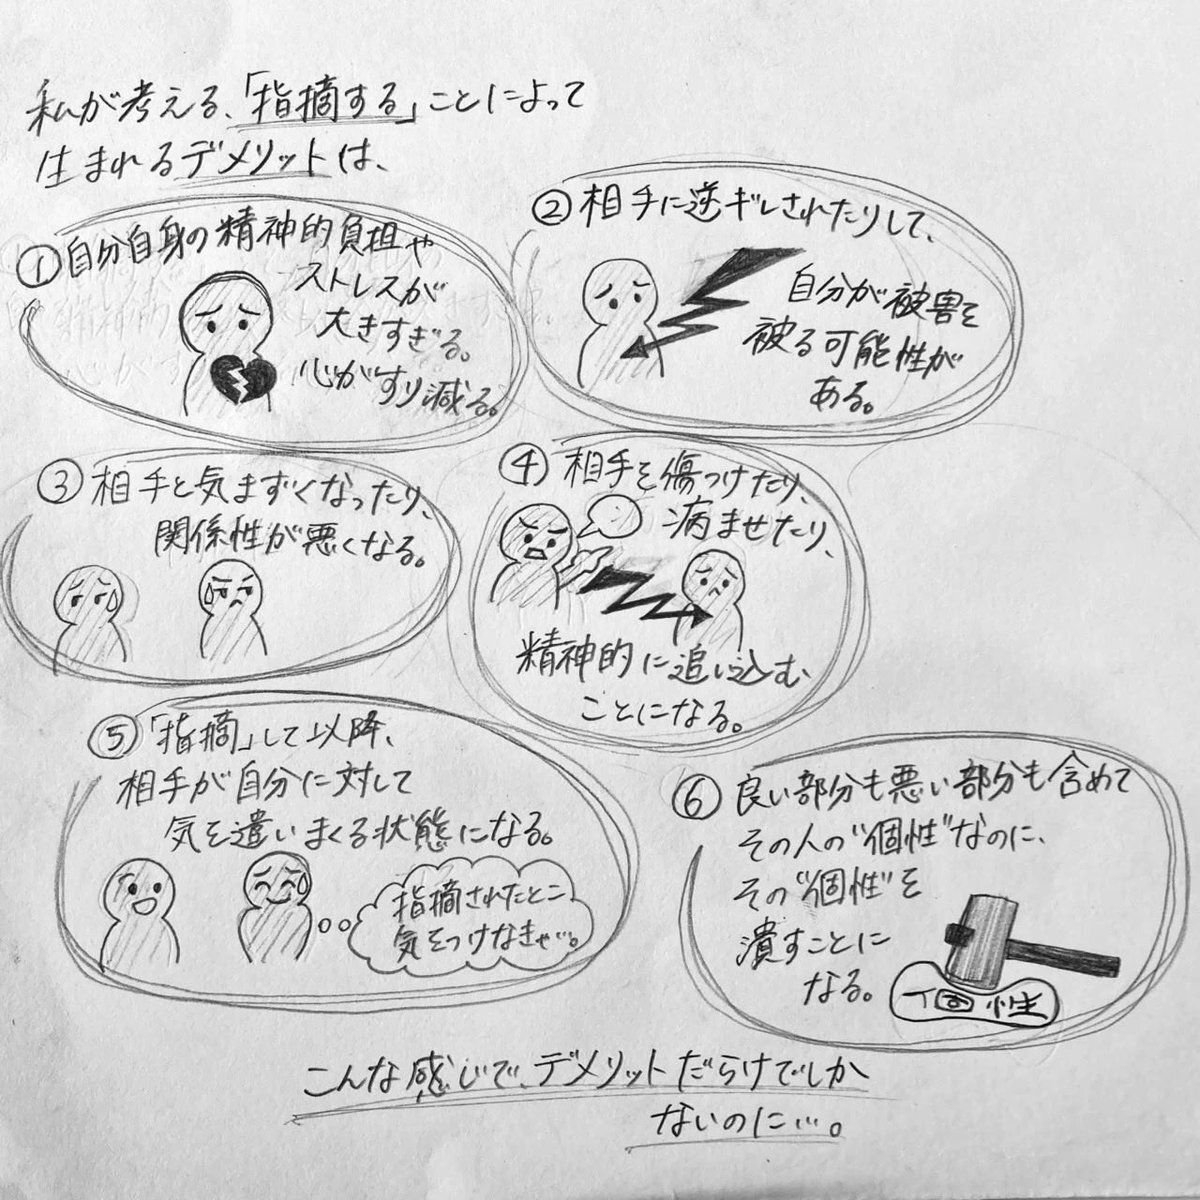 私が考える、「指摘する」ことによって
生まれるデメリットは、
①自分自身の精神的負担や
ストレスが
大きすぎる。
心がすり減る。
②相手に逆ギレされたりして、
自分が被害を
被る可能性が
ある。
③相手と気まずくなったり、
関係性が悪くなる。
④相手を傷つけたり、
病ませたり、
精神的に追い込む
ことになる。
⑤「指摘」して以降、
相手が自分に対して
気を遣いまくる状態になる。
指摘されたとこ
気をつけなきゃ…。
⑥良い部分も悪い部分も含めて
その人の“個性”なのに、
その“個性”を
潰すことに
なる。
個性
こんな感じで、デメリットだらけでしか
ないのに…。